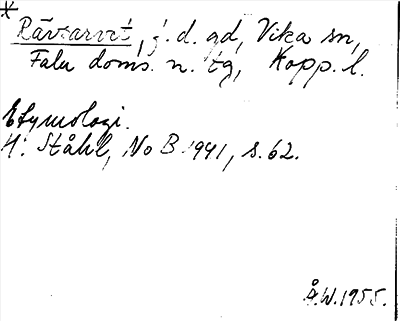 * Rävtarvet, f.d. gd, Vika sn,
Falu doms. n. tg, Kopp. l.
Etymologi.
H. Ståhl, NoB 1941, s. 62.
Å.W. 1955.